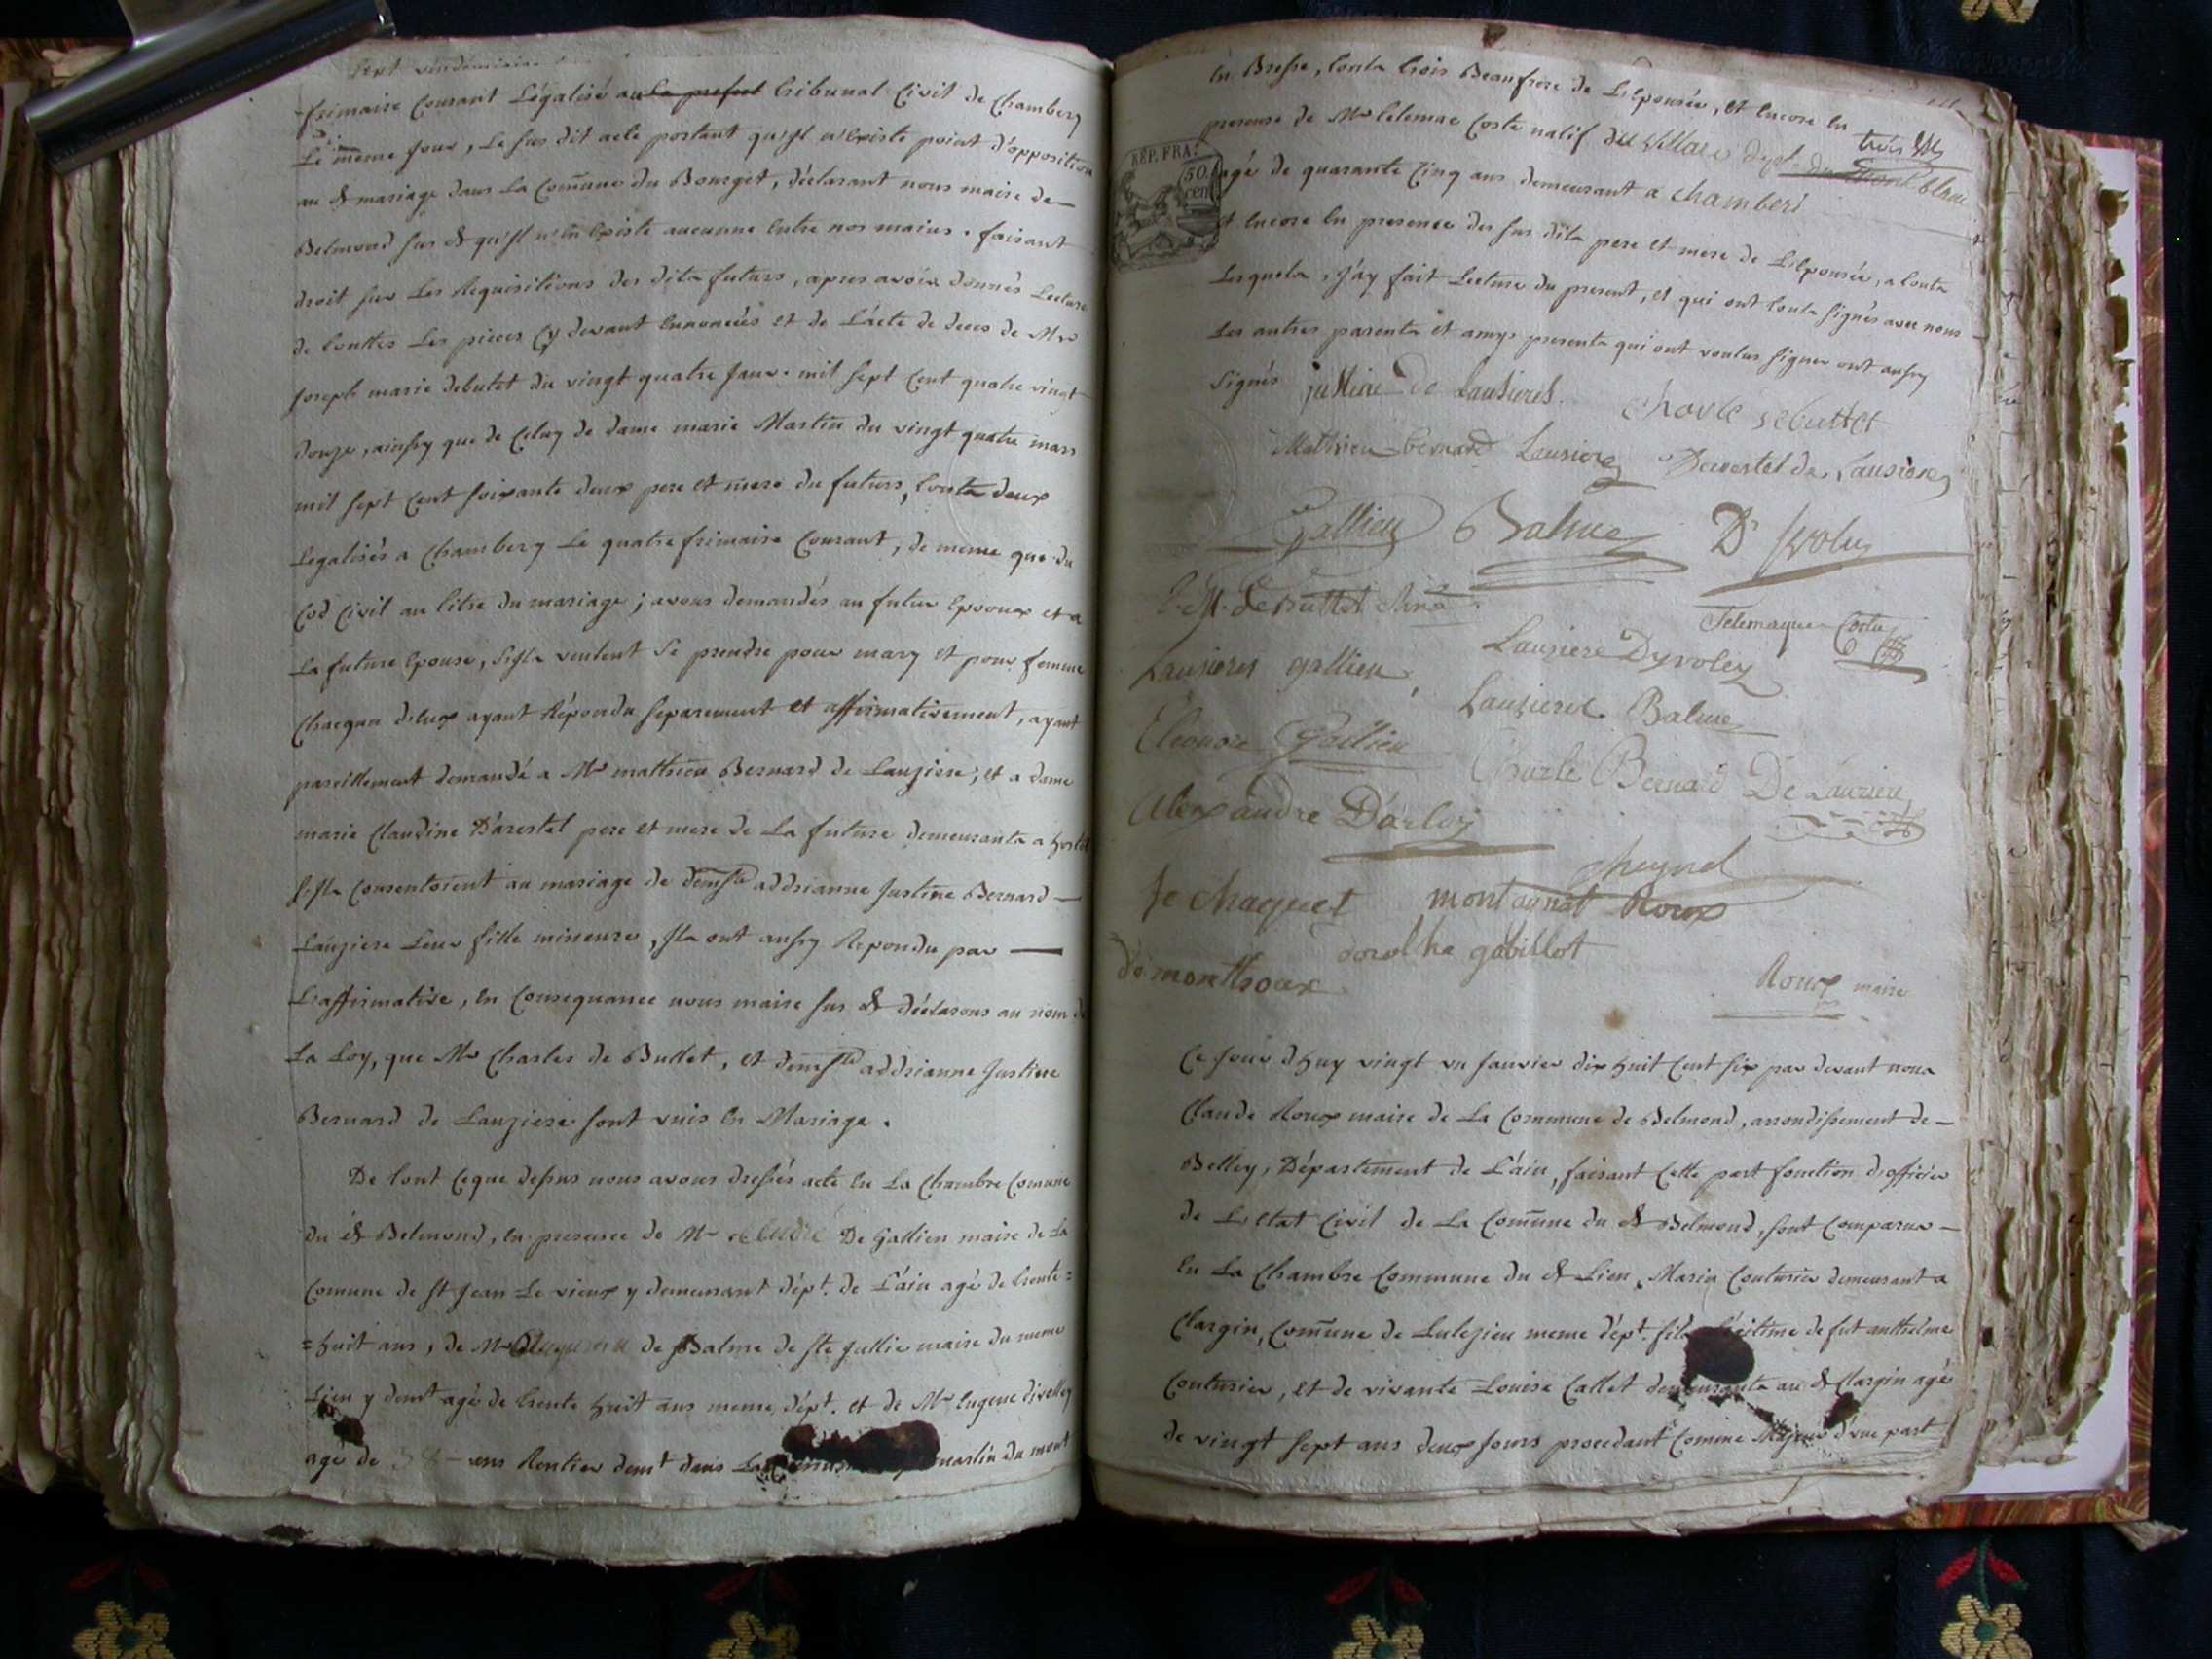 sept vendémiaire
frimaire Courant Légalisé au la prefect tribunal Civil de Chambery
Le même jour, Le sus dit acte portant qu'Jl n'Existe point d'opposition
au dt mariage dans La Comune du Bourget, déclarant nous maire de
Belmond sus dt qu'Jl n'En Existe aucunne Entre nos mains. faisant
droit sur Les Requisitions des dits futurs, apres avoir donnés Lecture
de touttes Les pieces Cy devant Ennoncées et de L'acte de deces de Mr
joseph marie debutet du vingt quatre Janv. mil sept Cent quatre vingt
douze, ainsy que de Celuy de dame marie Martin du vingt quatre mars
mil sept Cent soixante deux pere et mere du futurs, touts deux
Legalisés a Chambery Le quatre frimaire Courant, de meme que du
Cod Civil au titre du mariage; avons demandés au futur Epooux et a
La future Epouse, s'Jls veulent se prendre pour mary et pour femme
Chacqun d'Eux ayant Répondu separement et affirmativement, ayant
pareillement demandé a Mr mathieu Bernard de Lauziere, et a dame
marie Claudine D'arestel pere et mere de La future demeurants a hostel
s'Jls Consentoient au mariage de demslle addrianne Justine Bernard
Lauziere Leur fille mineure, Jls ont ausy Repondu par
L'affirmative, En Consequance nous maire sus dt déclarons au nom de
La Loy, que Mr Charles de Buttet, et demslle addrianne Justine
Bernard de Lauziere sont unis En Mariage.
De tout Ceque dessus nous avons dressés acte En La Chambre Comune
du dt Belmond, En presence de Mr De Gallien maire de La
Comune de St Jean Le vieux y demeurant dépt. de L'ain agé de trente
huit ans, de Mr de Balme de Ste Jullie maire du meme
Lieu y demt agé de trente huit ans meme dépt. et de Mr Eugene divolley
agé de 38 ans Rentier demt dans La martin du mont
En Bresse, touts trois Beaufrere de L'Epousée, et Encore En
presence de Mr telemac Coste natif du Villard dept. du Mont blanc
agé de quarante Cinq ans demeurant a Chamberi
RÉP. FRA.
50 cent
et Encore En presence des sus dits pere et mere de L'Epousée, a touts
Lesquels, J'ay fait Lecture du present, et qui ont touts signés avec nous
Les autres parents et amys presents qui ont voulus signer ont ausy
signés justine de Lausieres. Charle debuttet
Mathieu bernard Lausiere Darestel de Lausiere
Gallien Balme
Debuttet
Telemaque Coste
Lausieres gallien, Lauziere Dyvoley
Lauziere Balme
Eleonore Gallien
Charle Bernard De Lauziere
Alexandre D'arloz
montagnat Roux
gabillot
demonthoux
Roux maire
Ce jour d'huy vingt un janvier dix huit Cent six par devant nous
Claude Roux maire de La Commune de Belmond, arrondissement de
Belley, Département de L'ain, faisant Cette part fonction d'officier
de L'Etat Civil de La Comune du dt Belmond, sont Comparus
En La Chambre Commune du dt Lieu, Marin Couturier demeurant a
Clargin, Comune de Lulezieu meme dépt. fils légitime de fut anthelme
Couturier, et de vivante Louise Callet demeurante au dt Clargin agé
de vingt sept ans deux jours procedant Comme Majeur d'une part